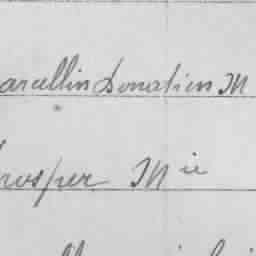 arcellin Donatien M
rosper Mie